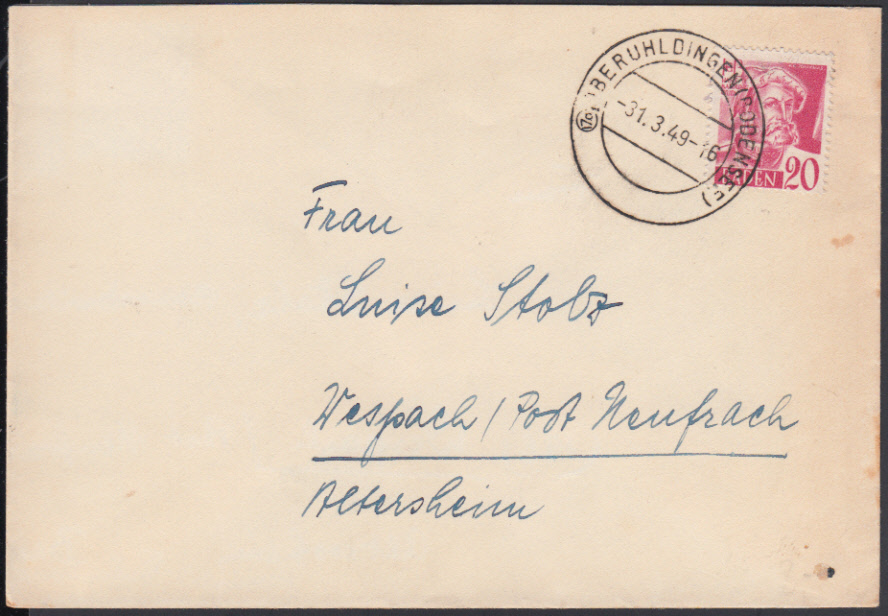 (17b) OBERUHLDINGEN (BODENSEE)
-31.3.49-16
BADEN 20
Frau
Luise Stolz
Wespach / Post Neufrach
Altersheim